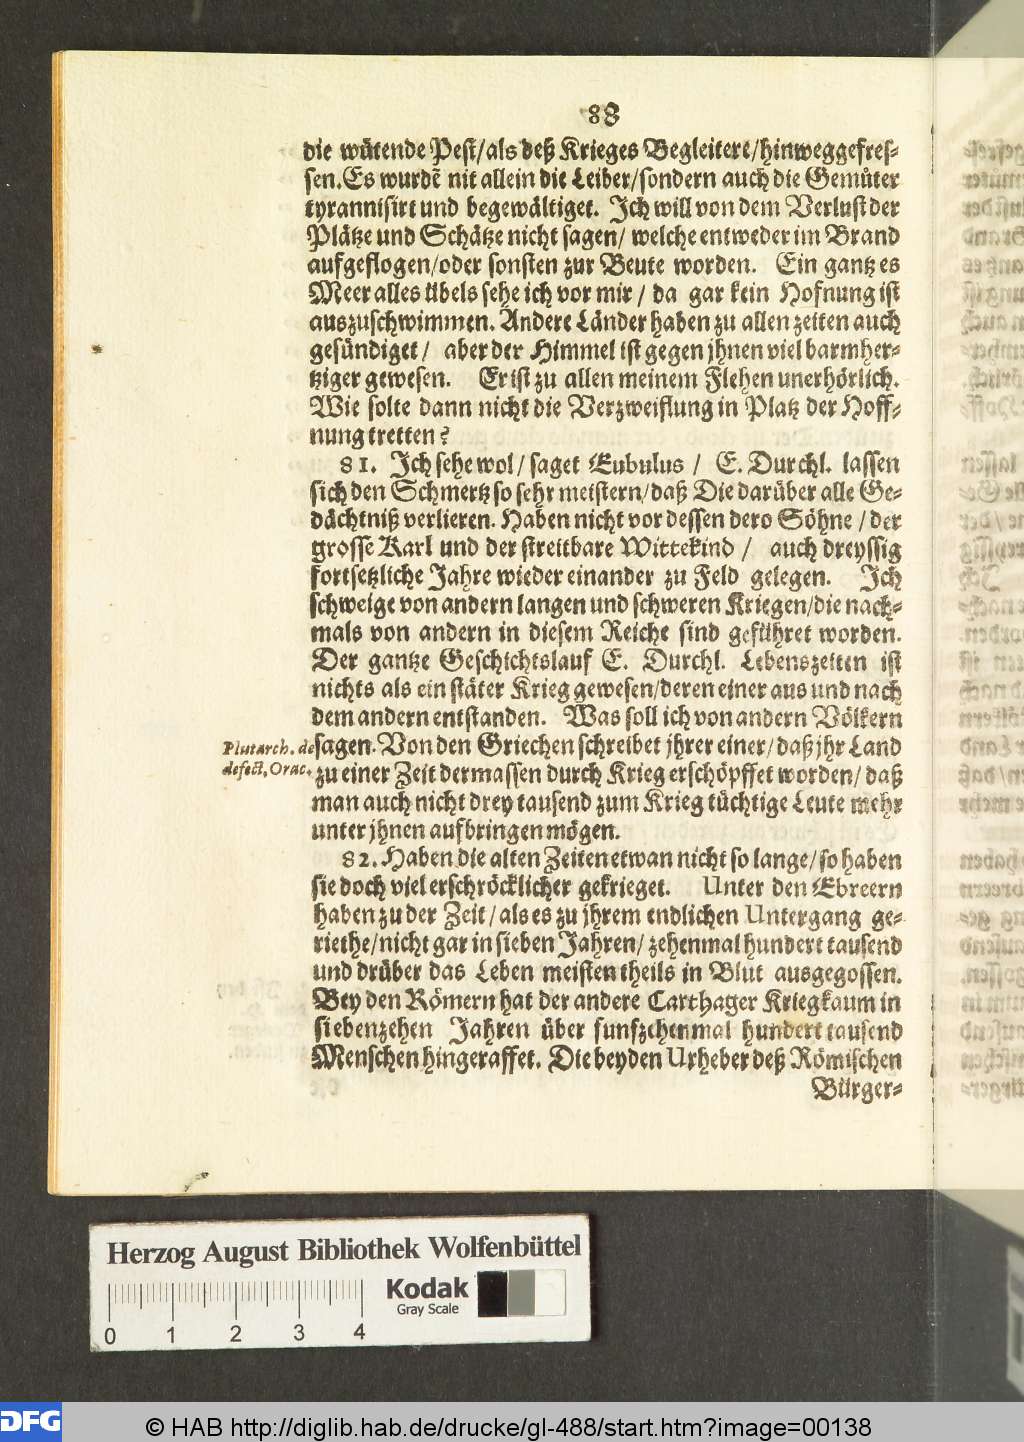 88
die wütende Pest/als deß Krieges Begleitere/hinweggefres-
sen. Es wurdẽ nit allein die Leiber/sondern auch die Gemüter
tyrannisirt und begewältiget. Ich will von dem Verlust der
Plätze und Schätze nicht sagen/ welche entweder im Brand
aufgeflogen/oder sonsten zur Beute worden. Ein gantzes
Meer alles übels sehe ich vor mir / da gar kein Hofnung ist
auszuschwimmen. Andere Länder haben zu allen zeiten auch
gesündiget / aber der Himmel ist gegen jhnen viel barmher-
tziger gewesen. Er ist zu allen meinem Flehen unerhörlich.
Wie solte dann nicht die Verzweiflung in Platz der Hoff-
nung tretten?
81. Ich sehe wol / saget Eubulus / E. Durchl. lassen
sich den Schmertz so sehr meistern/daß Die darüber alle Ge-
dächtniß verlieren. Haben nicht vor dessen dero Söhne / der
grosse Karl und der streitbare Wittekind / auch dreyssig
fortsetzliche Jahre wieder einander zu Feld gelegen. Ich
schweige von andern langen und schweren Kriegen/die nach-
mals von andern in diesem Reiche sind geführet worden.
Der gantze Geschichtslauf E. Durchl. Lebenszeiten ist
nichts als ein stäter Krieg gewesen/deren einer aus und nach
dem andern entstanden. Was soll ich von andern Völkern
Plutarch. de
defect. Orac.
sagen. Von den Griechen schreibet jhrer einer/ daß jhr Land
zu einer Zeit dermassen durch Krieg erschöpffet worden/ daß
man auch nicht drey tausend zum Krieg tüchtige Leute mehr
unter jhnen aufbringen mögen.
82. Haben die alten Zeiten etwan nicht so lange/so haben
sie doch viel erschröcklicher gekrieget. Unter den Ebreern
haben zu der Zeit / als es zu jhrem endlichen Untergang ge-
riethe/nicht gar in sieben Jahren/ zehenmal hundert tausend
und drüber das Leben meistentheils in Blut ausgegossen.
Bey den Römern hat der andere Carthager Krieg kaum in
siebenzehen Jahren über funfzehenmal hundert tausend
Menschen hingeraffet. Die beyden Urheber deß Römischen
Bürger-
Herzog August Bibliothek Wolfenbüttel
Kodak
Gray Scale
0 1 2 3 4
DFG
© HAB http://diglib.hab.de/drucke/gl-488/start.htm?image=00138